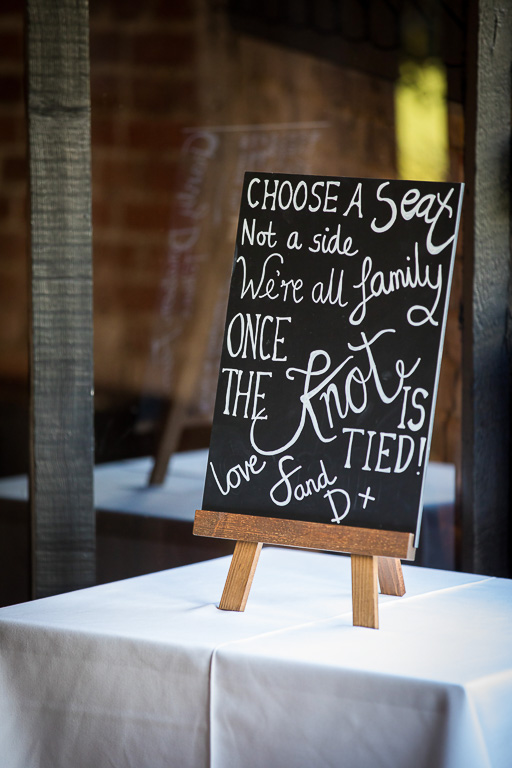 CHOOSE A Seat
Not a side
We're all family
ONCE
THE Knot IS
TIED!
love S and
D +